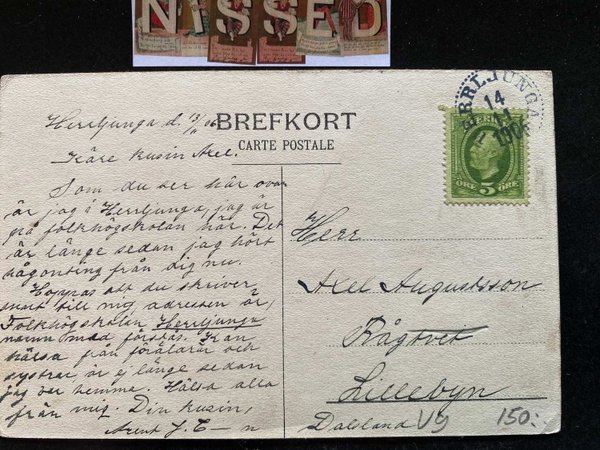 NISSED
BREFKORT
CARTE POSTALE
Herrljunga d. 13/11 06
Käre kusin Axel.
Som du ser här ovan
är jag i Herrljunga, jag är
på folkhögskolan här. Det
är länge sedan jag hört
någonting från dig nu.
Hoppas att du skriver
snart till mig adressen är,
Folkhögskolan Herrljunga
namn med förstås. Kan
hälsa från föräldrar och
systrar är ej länge sedan
jag var hemma. Hälsa alla
från mig. Din kusin,
J. C–n
HERRLJUNGA
14
11
1906
ÖRE 5 ÖRE
Herr
Axel Augustsson
Rågtvet
Lillebyn
Dalsland Vg 150: